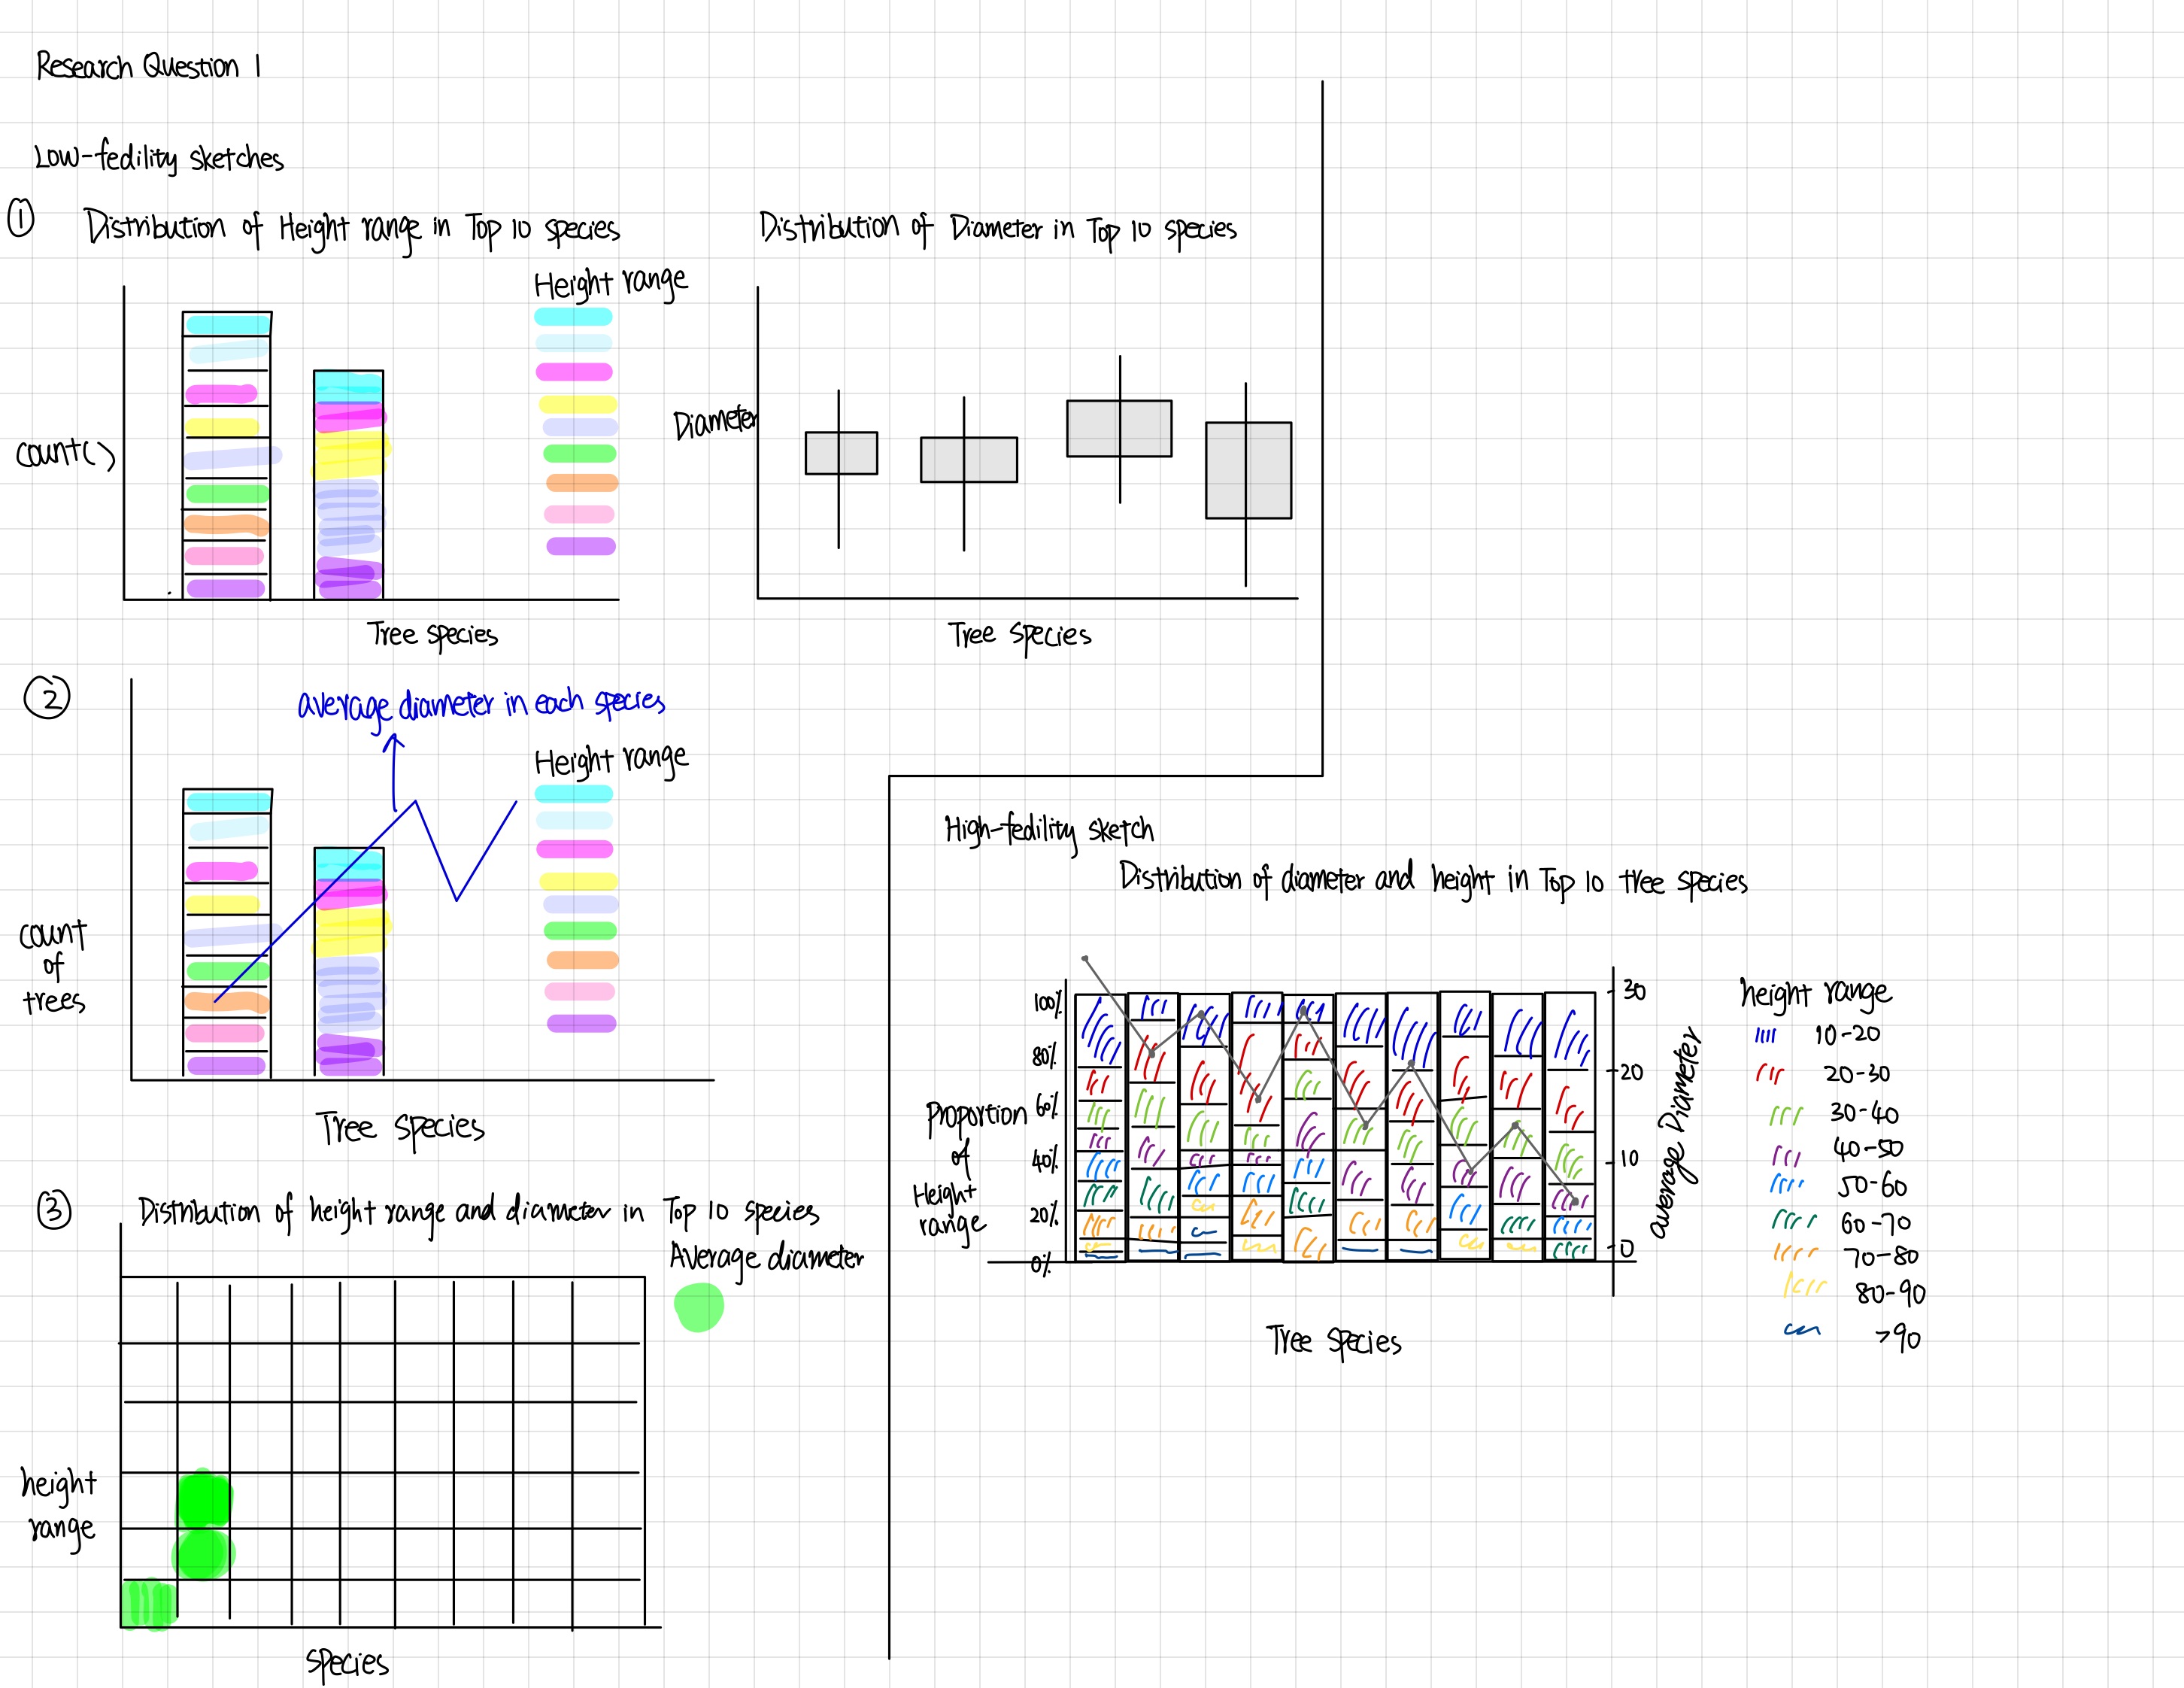 Research Question 1
Low-fedility sketches
①
Distribution of Height range in Top 10 species
Height range
count()
Tree species
Distribution of Diameter in Top 10 species
Diameter
Tree species
②
average diameter in each species
Height range
count
of
trees
Tree species
③
Distribution of height range and diameter in Top 10 species
Average diameter
height
range
species
High-fedility sketch
Distribution of diameter and height in Top 10 tree species
Proportion
of
Height
range
100%
80%
60%
40%
20%
0%
Tree species
30
20
10
0
average Diameter
height range
10-20
20-30
30-40
40-50
50-60
60-70
70-80
80-90
>90